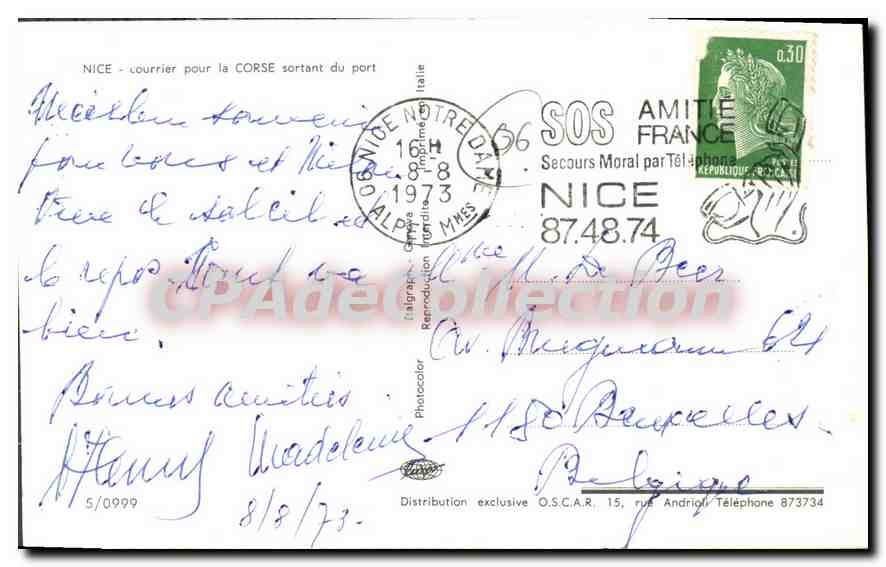 NICE - courrier pour la CORSE sortant du port
Meilleur souvenir
pour vous et
Vive le soleil et
le repos Tout va
bien.
Bonnes amitiés
Henry Madeleine
8/8/73.
5/0999
Photocolor
Italgraph - Genova
Reproduction Interdite
Imprimé en Italie
06 NICE NOTRE DAME
16 H
8-8
1973
ALPES Mmes
B6
SOS AMITIE
FRANCE
Secours Moral par Téléphone
NICE
87.48.74
0,30
POSTES
REPUBLIQUE FRANCAISE
Mme M. De Beer
av. Brugmann 621
1180 Bruxelles
Belgique
Distribution exclusive O.S.C.A.R. 15, rue Andrioli Téléphone 873734
CPAdeCollection